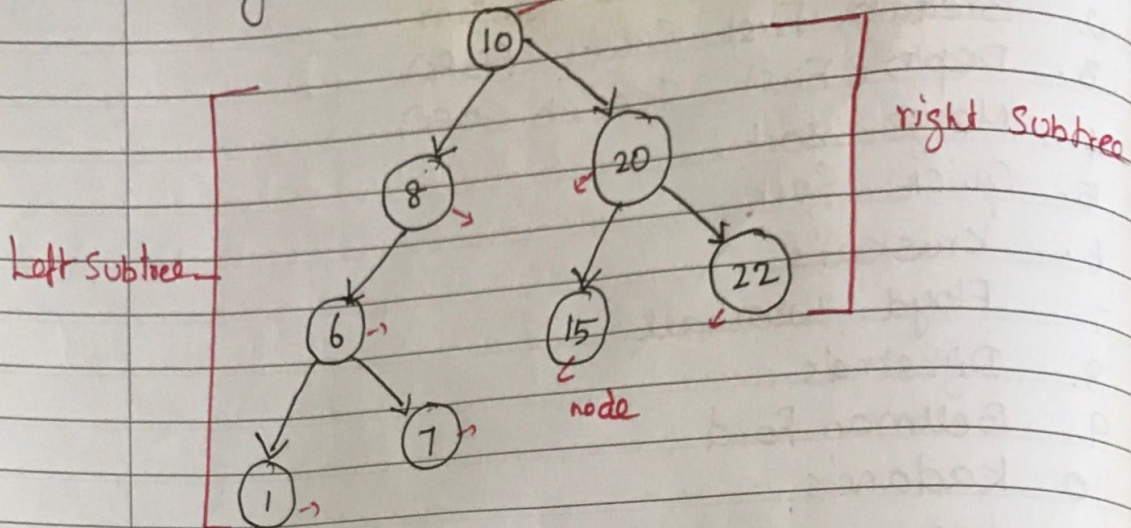 10
right Subtree
20
8
Left Subtree
22
6
15
node
7
1